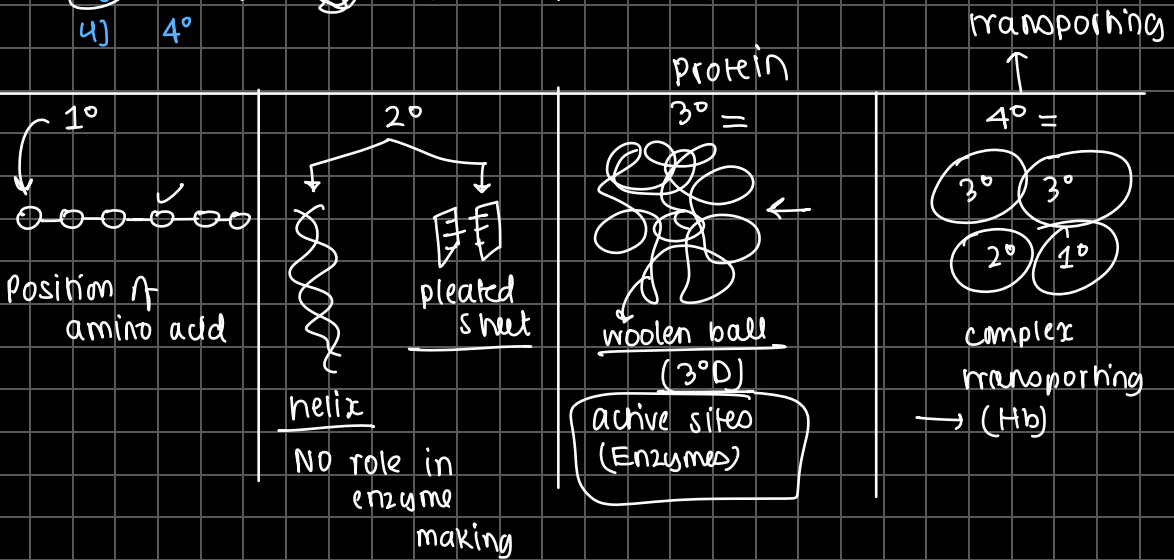 4) 4°
transporting
Protein
1°
2°
3° =
4° =
3° 3°
2° 1°
position of
amino acid
pleated
sheet
helix
NO role in
enzyme
making
woolen ball
(3°D)
active sites
(Enzymes)
complex
transporting
(Hb)